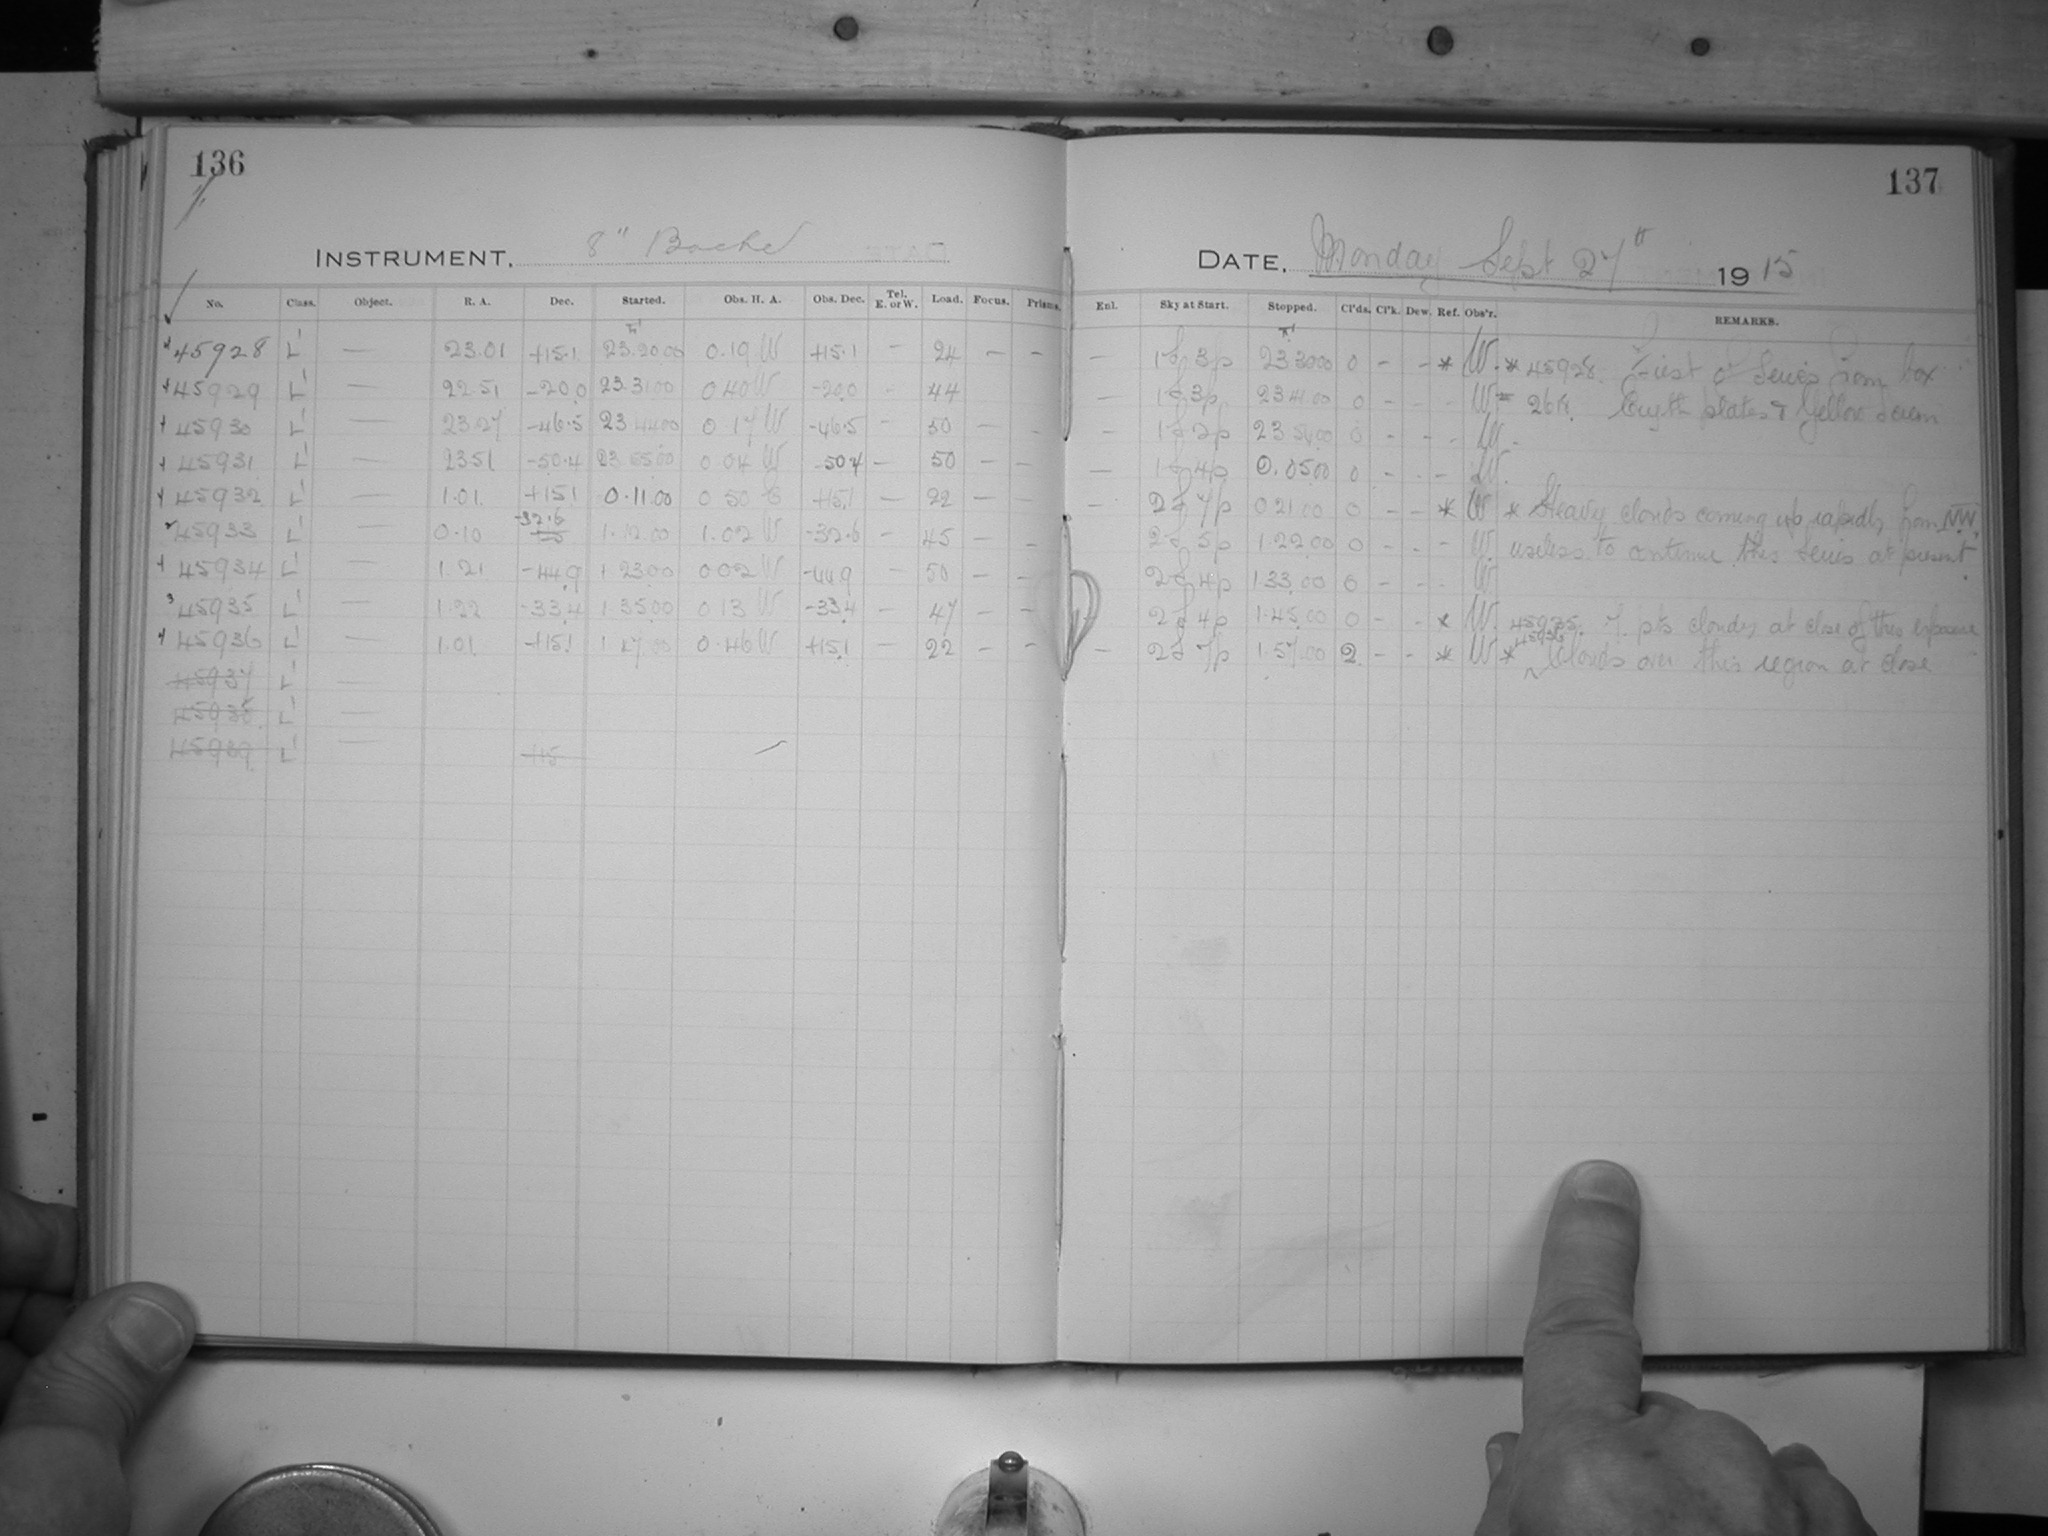 136
137
INSTRUMENT. 8" Bache
DATE. Monday Sept 27th 1915
No. Class. Object. R. A. Dec. Started. Obs. H. A. Obs. Dec. Tel. E. or W. Load. Focus. Prisms. Enl. Sky at Start. Stopped. Cl'ds. Cl'k. Dew. Ref. Obs'r. REMARKS.
45928 L' — 23.01 +15.1 23.20 00 0.19 W +15.1 — 24 — — — 23 30 00 0 - - * W. * 45928. First of Series from box
45929 L' — 22.51 -20.0 23.31 00 0 40 W -20.0 - 44 — 23 41 00 0 - - - W 26 plates & Yellow Screen
45930 L' — 23.27 -46.5 23 44 00 0 17 W -46.5 - 50 — — — 23 54 00 0 - - - W.
45931 L' — 23.51 -50.4 23 55 00 0 04 W -50.4 — 50 — — — 0.05 00 0 - - - W.
45932 L' — 1.01. +15.1 0.11.00 0 50 E +15.1 — 22 — — — 0 21 00 0 - - * W * Heavy clouds coming up rapidly from NW.
45933 L' — 0.10 -32.6 1.12.00 1.02 W -32.6 — 45 — — 1.22.00 0 - - - W. useless to continue this series at present
45934 L' — 1.21 -44.9 1 23 00 0 02 W -44.9 — 50 — — 1 33.00 0 - - - W
45935 L' — 1.22 -33.4 1.35 00 0 13 W -33.4 — 47 — — 1.45.00 0 - - * W. 45935. 7 pts cloudy at close of this exposure
45936 L' — 1.01 +15.1 1.47.00 0.46 W +15.1 — 22 — — — 1.57.00 2 - - * W * 45936 Clouds over this region at close
45937 L' —
45938 L' —
45939 L' — +15